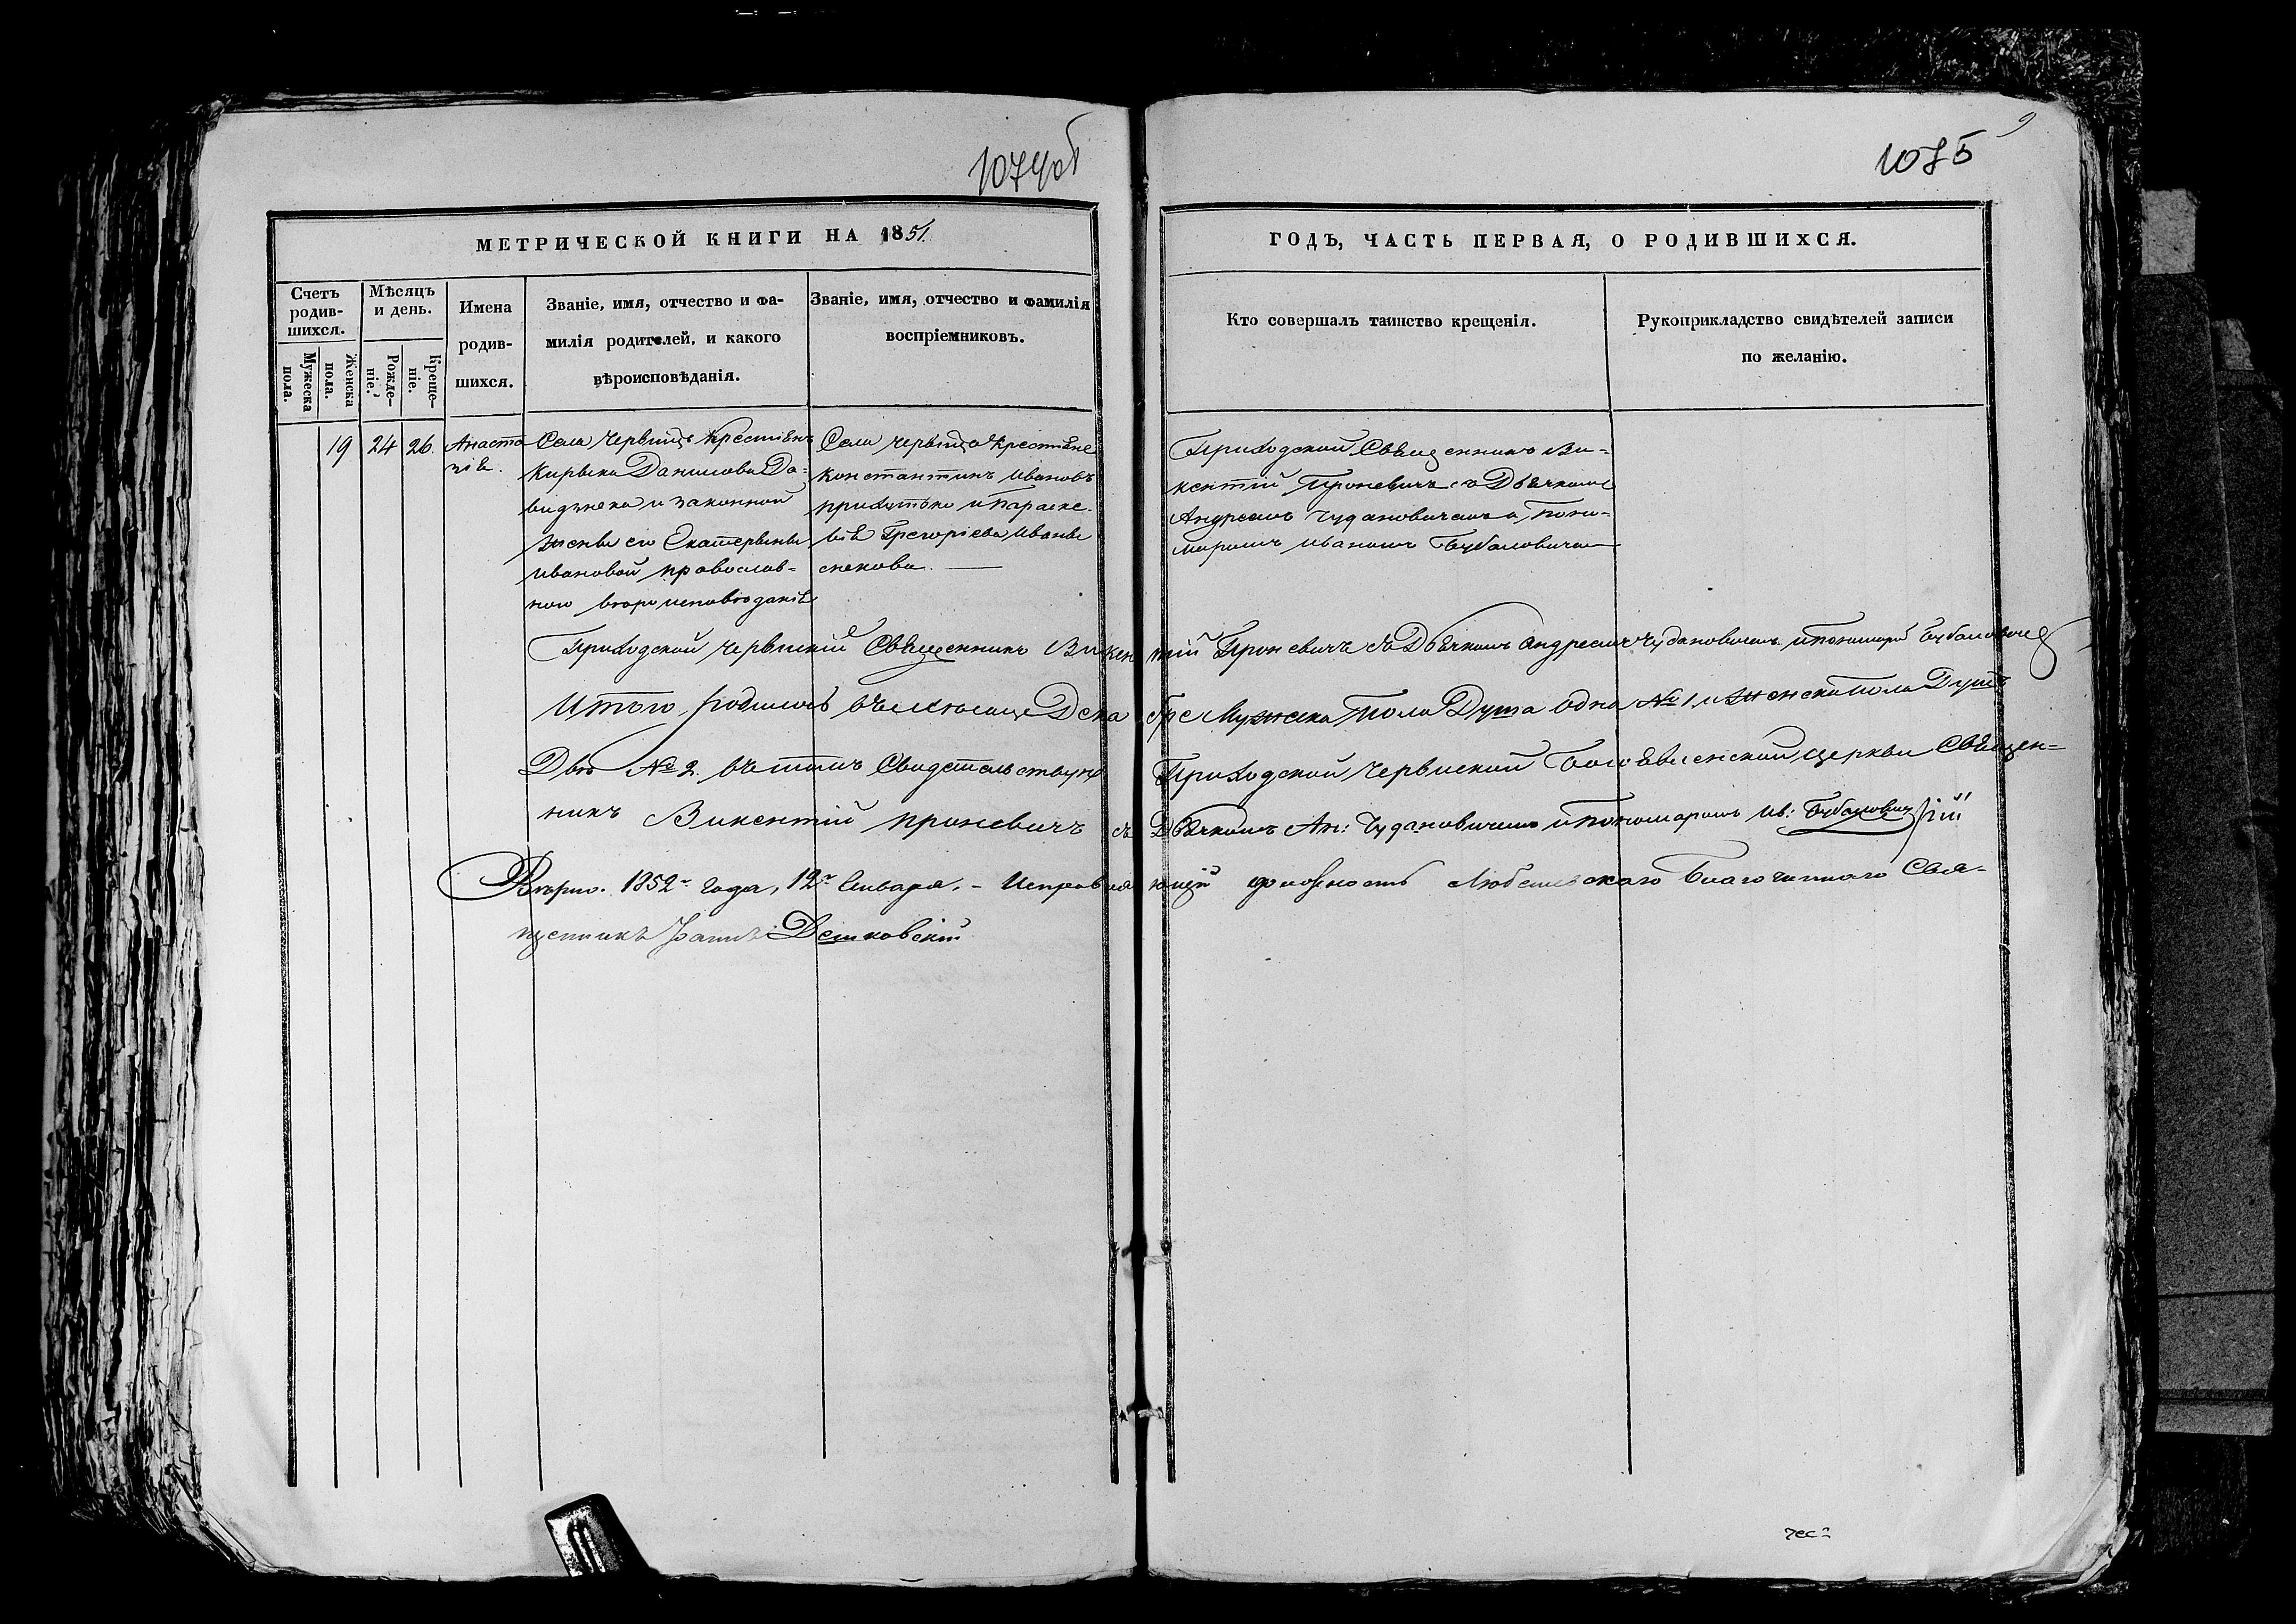 1074об
1075
9
МЕТРИЧЕСКОЙ КНИГИ НА 1851.
ГОДЪ, ЧАСТЬ ПЕРВАЯ, О РОДИВШИХСЯ.
Счетъ родив-шихся.
Мужеска пола.
Женска пола.
Мѣсяцъ и день.
Рожде-ніе.
Креще-ніе.
Имена родив-шихся.
Званіе, имя, отчество и фа-
милія родителей, и какого
вѣроисповѣданія.
Званіе, имя, отчество и фамилія
воспріемниковъ.
Кто совершалъ таинство крещенія.
Рукоприкладство свидѣтелей записи
по желанію.
19
24
26.
Анаста
зіѣ.
Села Червища Крестьянъ
Кирыка Данилова Да-
видзюка и законной
Жены его Екатерины
Ивановой православ-
ного вѣроисповѣданіѣ
Села Червища Крестьяне
Константинъ Ивановъ
и Параске-
віѣ Грегоріева Иваны
Приходской Свѣщенникъ Ви-
кентій Проневичъ съ Дѣячкомъ
Андреемъ Чудановичемъ и Поно-
маромъ Иваномъ Бубаловичем
Приходской Червискій Свѣщенникъ Викентій Проневичъ съ Дѣячкомъ Андреемъ Чудановичемъ и Пономаромъ
Итого родилось въ месяце Декабре Мужеска Пола Душа Одна № 1 и Женска Пола Душъ
Двѣ № 2. въ томъ Свидетельствую Приходской Червиской Богоѣвленской Церкви Свѣщен=
никъ Викентій Проневичъ съ Дѣячкомъ Ан: Чудановичемъ и Пономаромъ Ив: Бубаловичъ
Вѣрно. 1852 года, 12 Генваря. - Исправляющій должность Любешевскаго Благочиннаго Свя-
щенникъ Демковскій